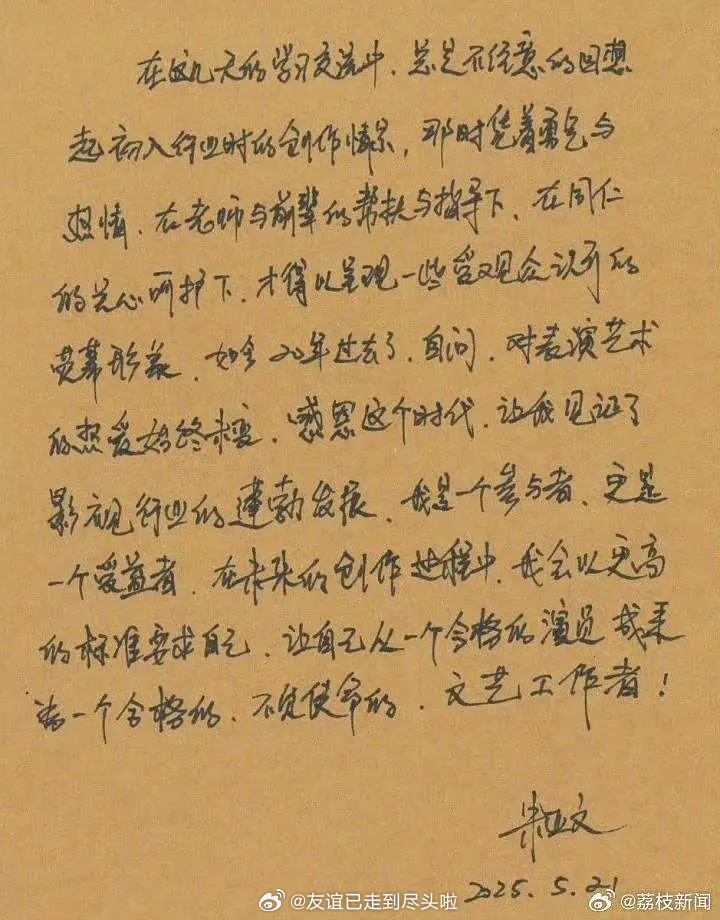 在这几天的学习交流中，总是不经意的回想
起初入行业时的创作情景，那时凭着勇气与
热情，在老师与前辈的帮扶与指导下，在同仁
的关心呵护下，才得以呈现一些受观众认可的
荧幕形象，如今20年过去了，自问，对表演艺术
的热爱始终未变，感恩这个时代，让我见证了
影视行业的蓬勃发展，我是一个参与者，更是
一个受益者，在未来的创作过程中，我会以更高
的标准要求自己，让自己从一个合格的演员成
为一个合格的、不负使命的、文艺工作者！
朱亚文
2025.5.21
@友谊已走到尽头啦
@荔枝新闻